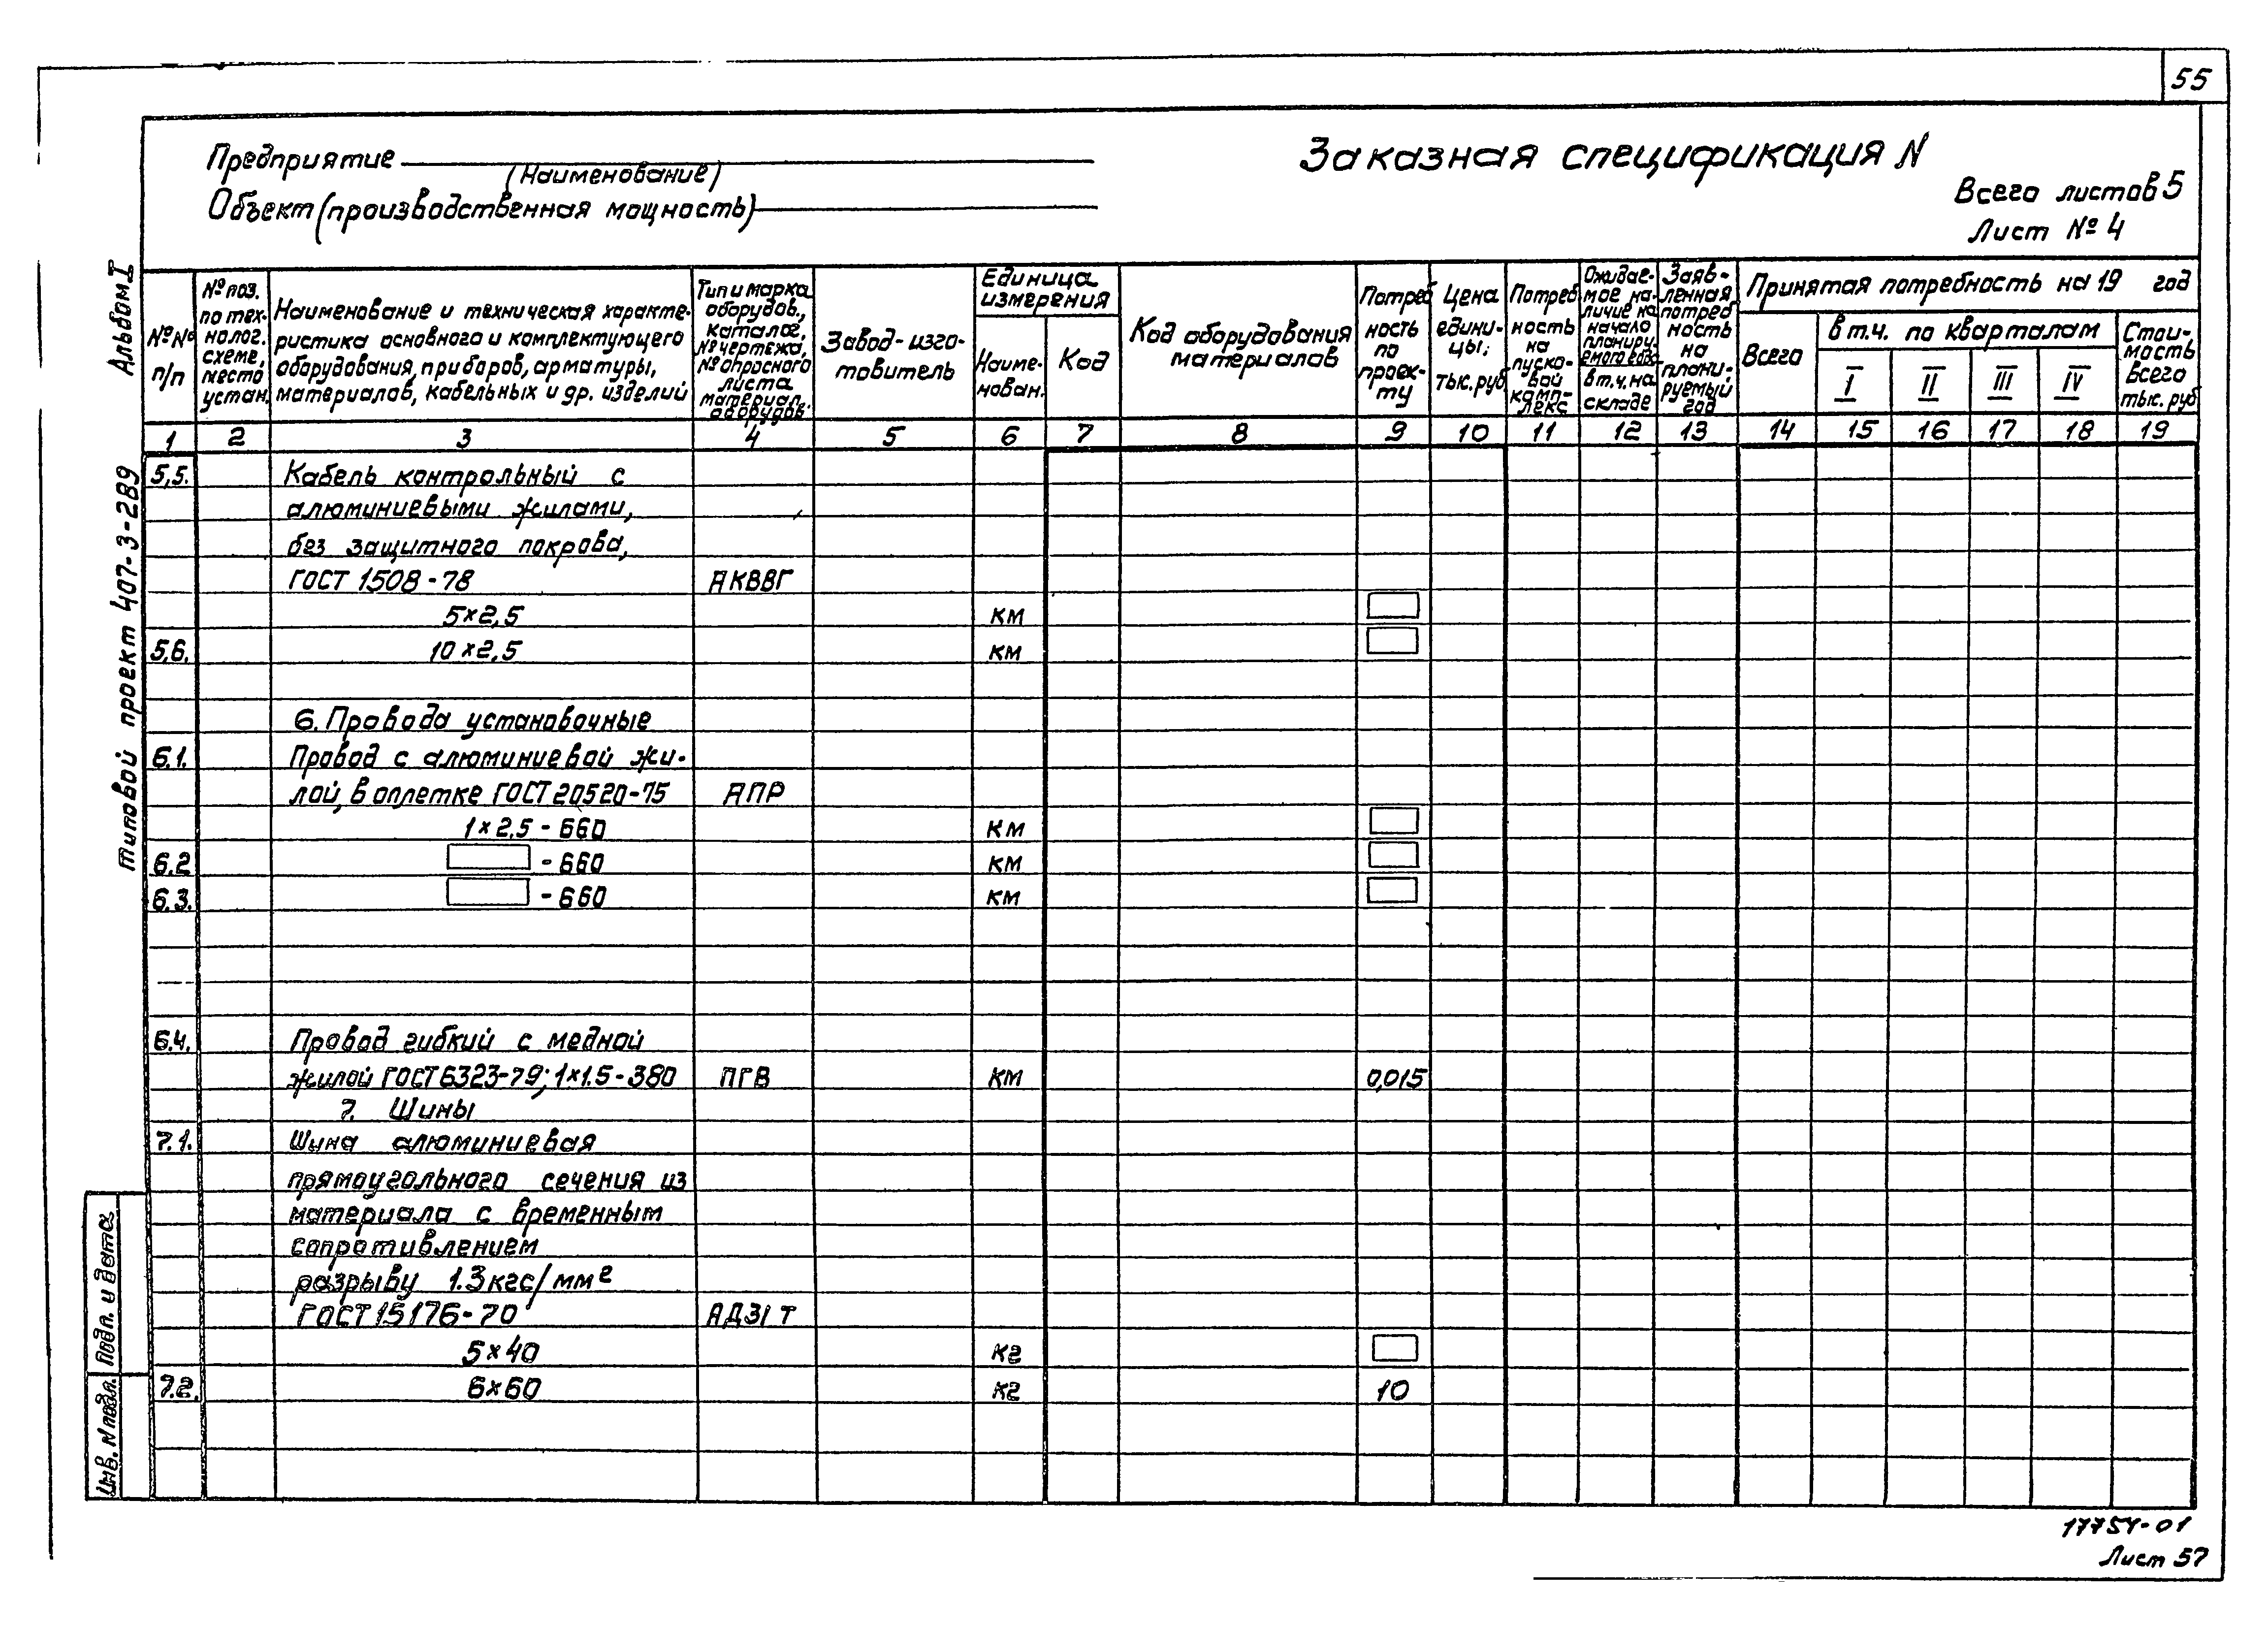 55
Предприятие
(Наименование)
Объект (производственная мощность)
Заказная спецификация N
Всего листов 5
Лист № 4
Альбом I
типовой проект 407-3-289
№№ п/п
№ поз. по тех- нолог. схеме, место устан.
Наименование и техническая характе- ристика основного и комплектующего оборудования, приборов, арматуры, материалов, кабельных и др. изделий
Тип и марка оборудов., каталог, № чертежа, № опросного листа материал. оборудов.
Завод-изго- товитель
Единица измерения
Наиме- нован.
Код
Код оборудования материалов
Потреб ность по проек- ту
Цена едини- цы; тыс. руб
Потреб ность на пуско- вой комп- лекс
Ожидае- мое на- личие на начало планиру- емого года в т.ч. на складе
Заяв- ленная потреб ность на плани- руемый год
Принятая потребность на 19 год
Всего
в т.ч. по кварталам
I II III IV
Стои- мость всего тыс. руб
1 2 3 4 5 6 7 8 9 10 11 12 13 14 15 16 17 18 19
5,5. Кабель контрольный с
алюминиевыми жилами,
без защитного покрова,
ГОСТ 1508-78 АКВВГ
5×2,5 км
5,6. 10×2,5 км
6. Провода установочные
6.1. Провод с алюминиевой жи-
лой, в оплетке ГОСТ 20520-75 АПР
1×2,5-660 км
6.2 -660 км
6.3. -660 км
6.4. Провод гибкий с медной
жилой ГОСТ 6323-79; 1×1.5-380 ПГВ км 0,015
7. Шины
7.1. Шина алюминиевая
прямоугольного сечения из
материала с временным
сопротивлением
разрыву 1.3 кгс/мм²
ГОСТ 15176-70 АД31Т
5×40 кг
7.2. 6×60 кг 10
Подп. и дата
Инв. № подл.
17754-01
Лист 57